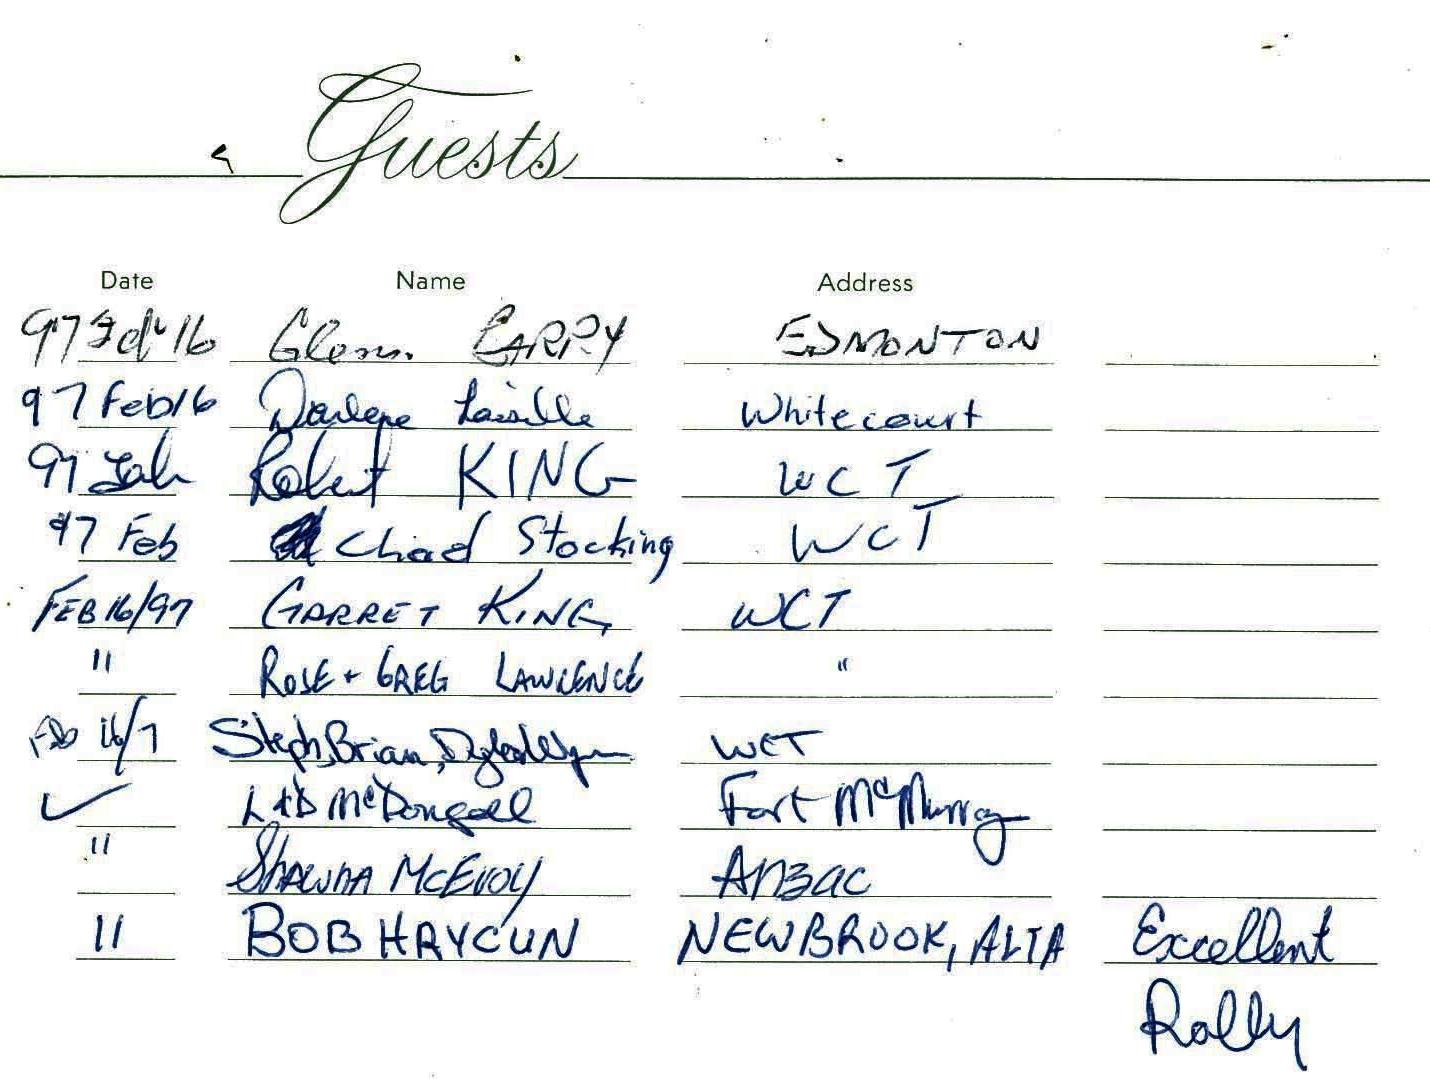 Guests
Date Name Address
97 Feb 16 Glenn BARRY EDMONTON
97 Feb 16 Darlene Whitecourt
97 Feb Robert KING WCT
97 Feb Chad Stocking WCT
FEB 16/97 GARRET KING WCT
" ROSE + GREG LAWRENCE "
Feb 16/7 Steph, Brian, WCT
✓ L + D McDougall Fort McMurray
" SHAWNA MCEVOY ANZAC
" BOB HAYCUN NEWBROOK, ALTA Excellent
Rally